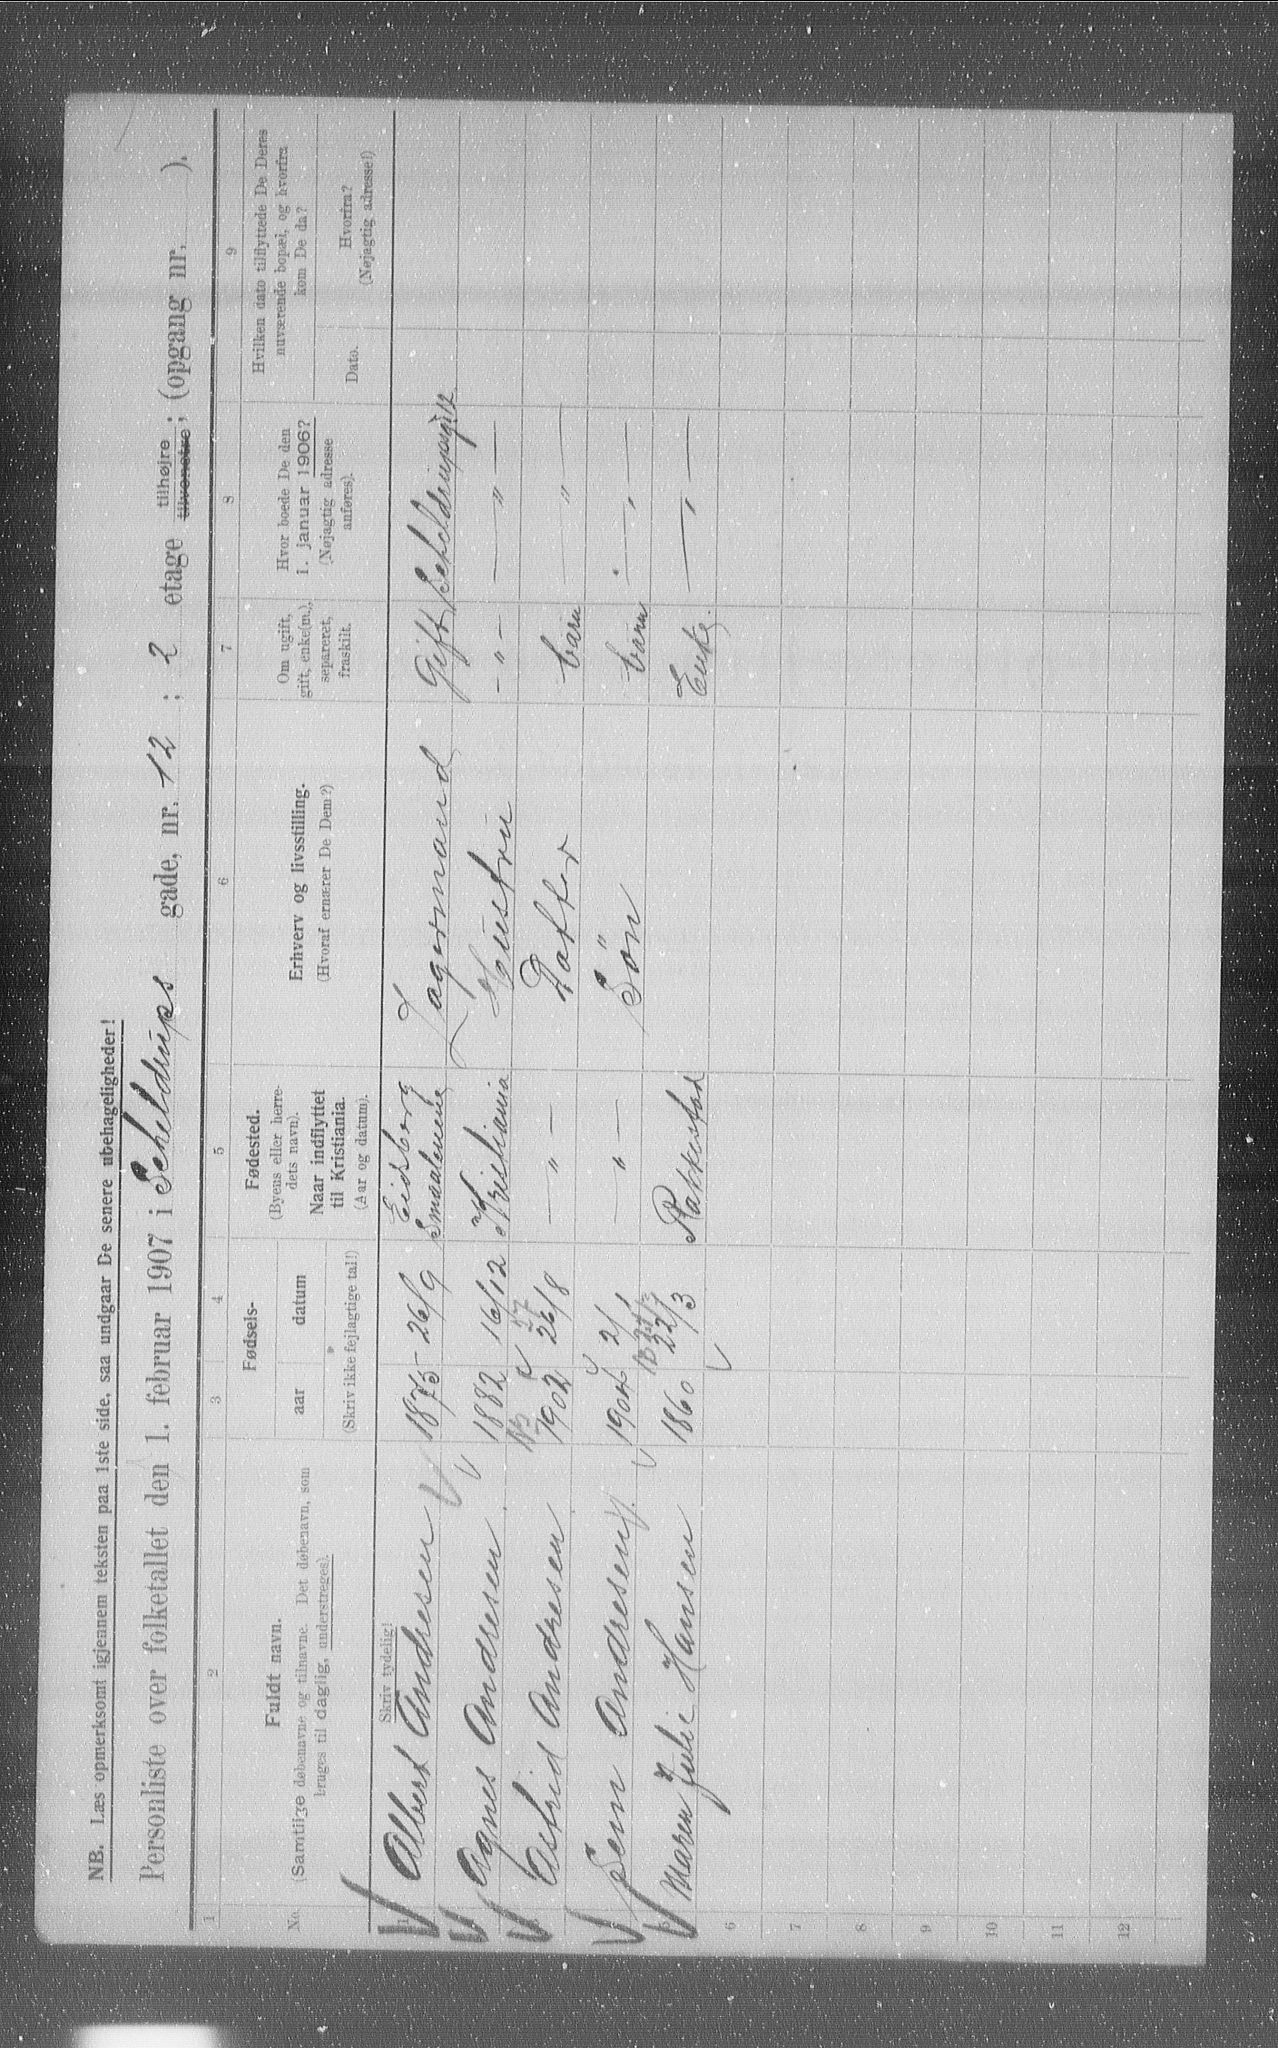 NB. Læs opmerksomt igjennem teksten paa 1ste side, saa undgaar De senere ubehageligheder!
Personliste over folketallet den 1. februar 1907 i Scheldrups gade, nr. 12 ; 2 etage tilhøjre tilvenstre; (opgang nr. ).
1 2 3 4 5 6 7 8 9
No.
Fuldt navn.
(Samtlige døbenavne og tilnavne. Det døbenavn, som
bruges til daglig, understreges).
Fødsels-
aar datum
(Skriv ikke fejlagtige tal!)
Fødested.
(Byens eller herre-
dets navn).
Naar indflyttet
til Kristiania.
(Aar og datum).
Erhverv og livsstilling.
(Hvoraf ernærer De Dem?)
Om ugift,
gift, enke(m.),
separeret,
fraskilt.
Hvor boede De den
1. januar 1906?
(Nøjagtig adresse
anføres).
Hvilken dato tilflyttede De Deres
nuværende bopæl, og hvorfra
kom De da?
Dato.
Hvorfra?
(Nøjagtig adresse!)
Skriv tydelig!
1 Albert Andresen 1875 26/9 Eidsberg Smaalenene Lagermand Gift Scheldrupsgt 12
Agnes Andresen 1882 16/12 Kristiania Hustru - " - — " —
Astrid Andresen 1902 26/8 — " — Datter barn — " —
Sem Andresen 1904 2/1 — " — Søn barn — " —
5 Maren Julie Hansen 1860 22/3 Rakkestad Enke. — " —
6
7
8
9
10
11
12